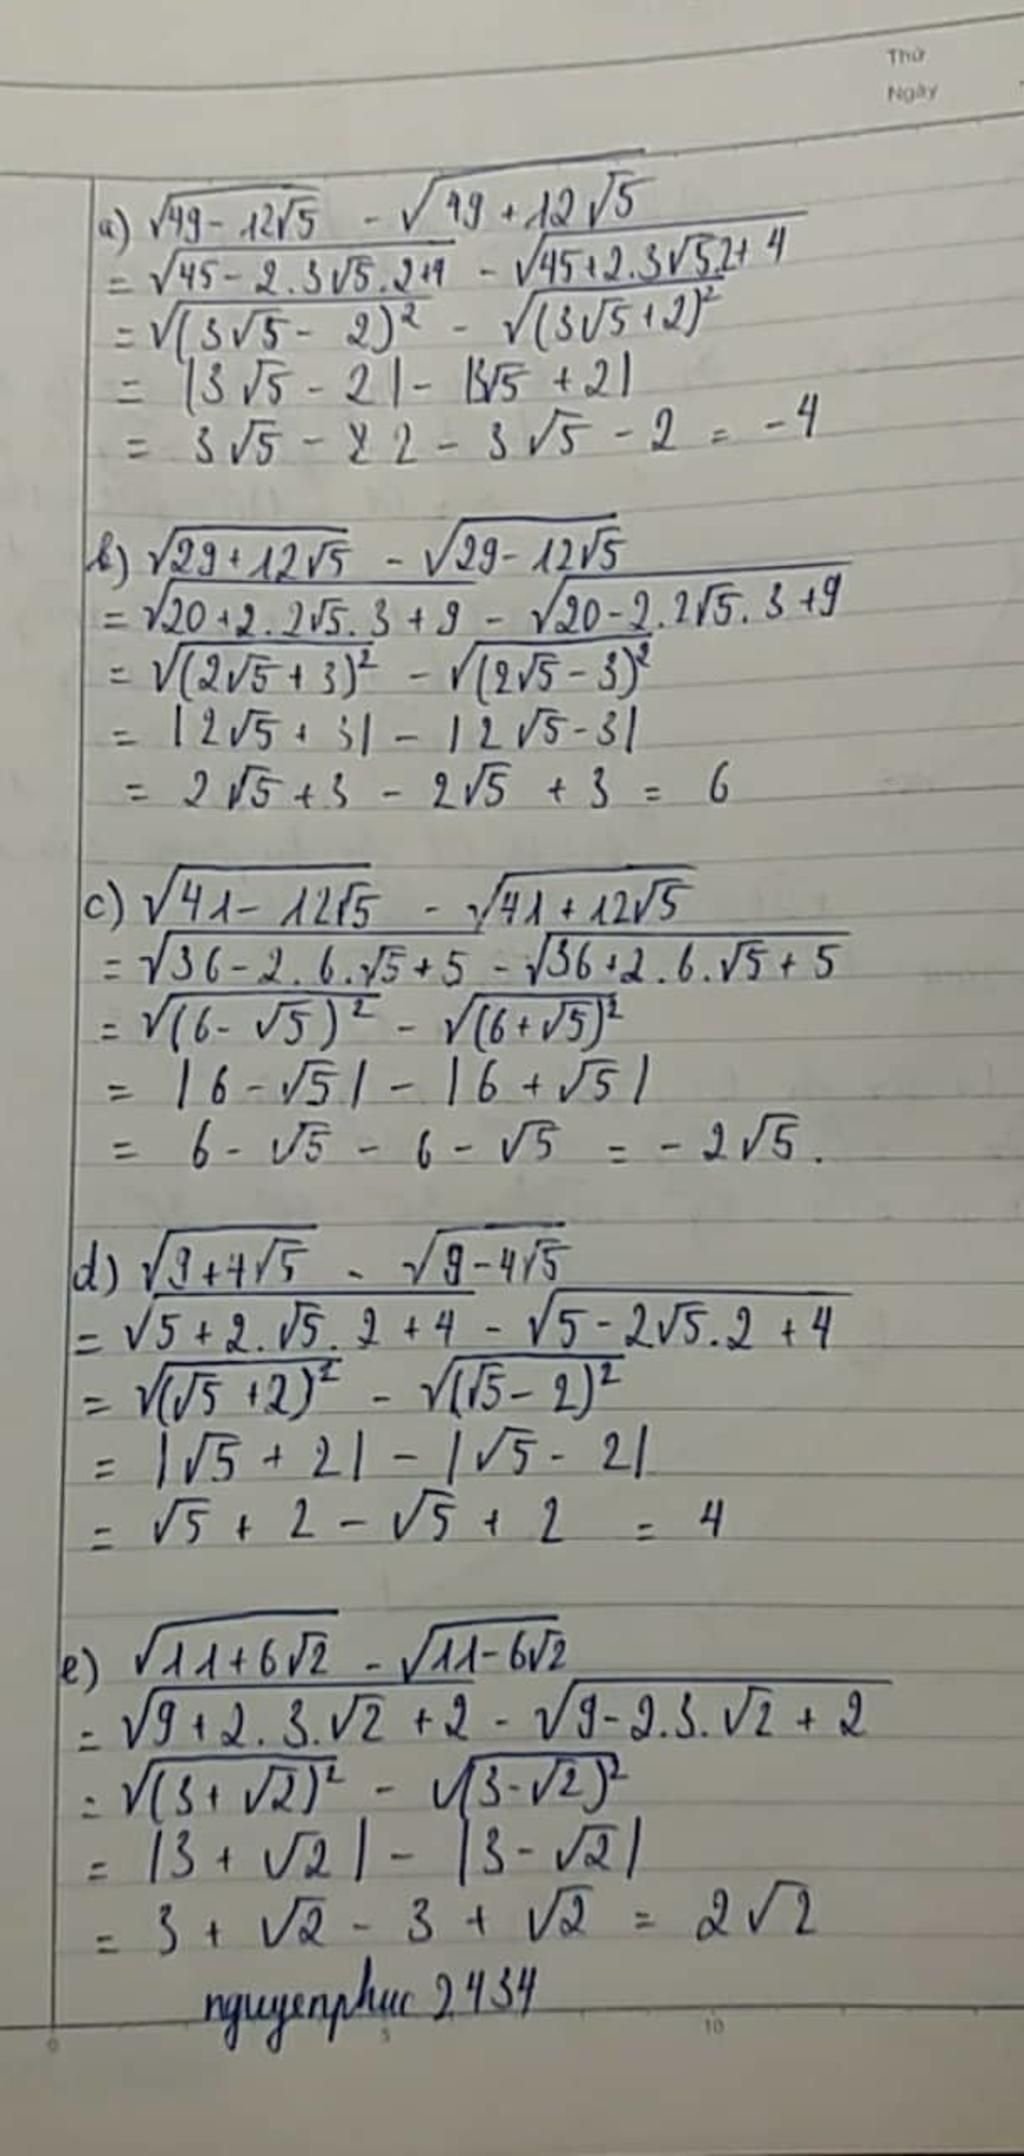 Thứ
Ngày
a) √49 - 12√5 - √49 + 12√5
= √45 - 2.3√5.2+4 - √45+2.3√5.2+4
= √(3√5 - 2)² - √(3√5+2)²
= |3√5 - 2| - |3√5 + 2|
= 3√5 - 2 - 3√5 - 2 = -4
b) √29 + 12√5 - √29 - 12√5
= √20 + 2.2√5.3 + 9 - √20 - 2.2√5.3 + 9
= √(2√5 + 3)² - √(2√5 - 3)²
= |2√5 + 3| - |2√5 - 3|
= 2√5 + 3 - 2√5 + 3 = 6
c) √41 - 12√5 - √41 + 12√5
= √36 - 2.6.√5 + 5 - √36 + 2.6.√5 + 5
= √(6 - √5)² - √(6 + √5)²
= |6 - √5| - |6 + √5|
= 6 - √5 - 6 - √5 = -2√5.
d) √9 + 4√5 - √9 - 4√5
= √5 + 2.√5.2 + 4 - √5 - 2√5.2 + 4
= √(√5 + 2)² - √(√5 - 2)²
= |√5 + 2| - |√5 - 2|
= √5 + 2 - √5 + 2 = 4
e) √11 + 6√2 - √11 - 6√2
= √9 + 2.3.√2 + 2 - √9 - 2.3.√2 + 2
= √(3 + √2)² - √(3 - √2)²
= |3 + √2| - |3 - √2|
= 3 + √2 - 3 + √2 = 2√2
nguyenphuc2434
0 5 10